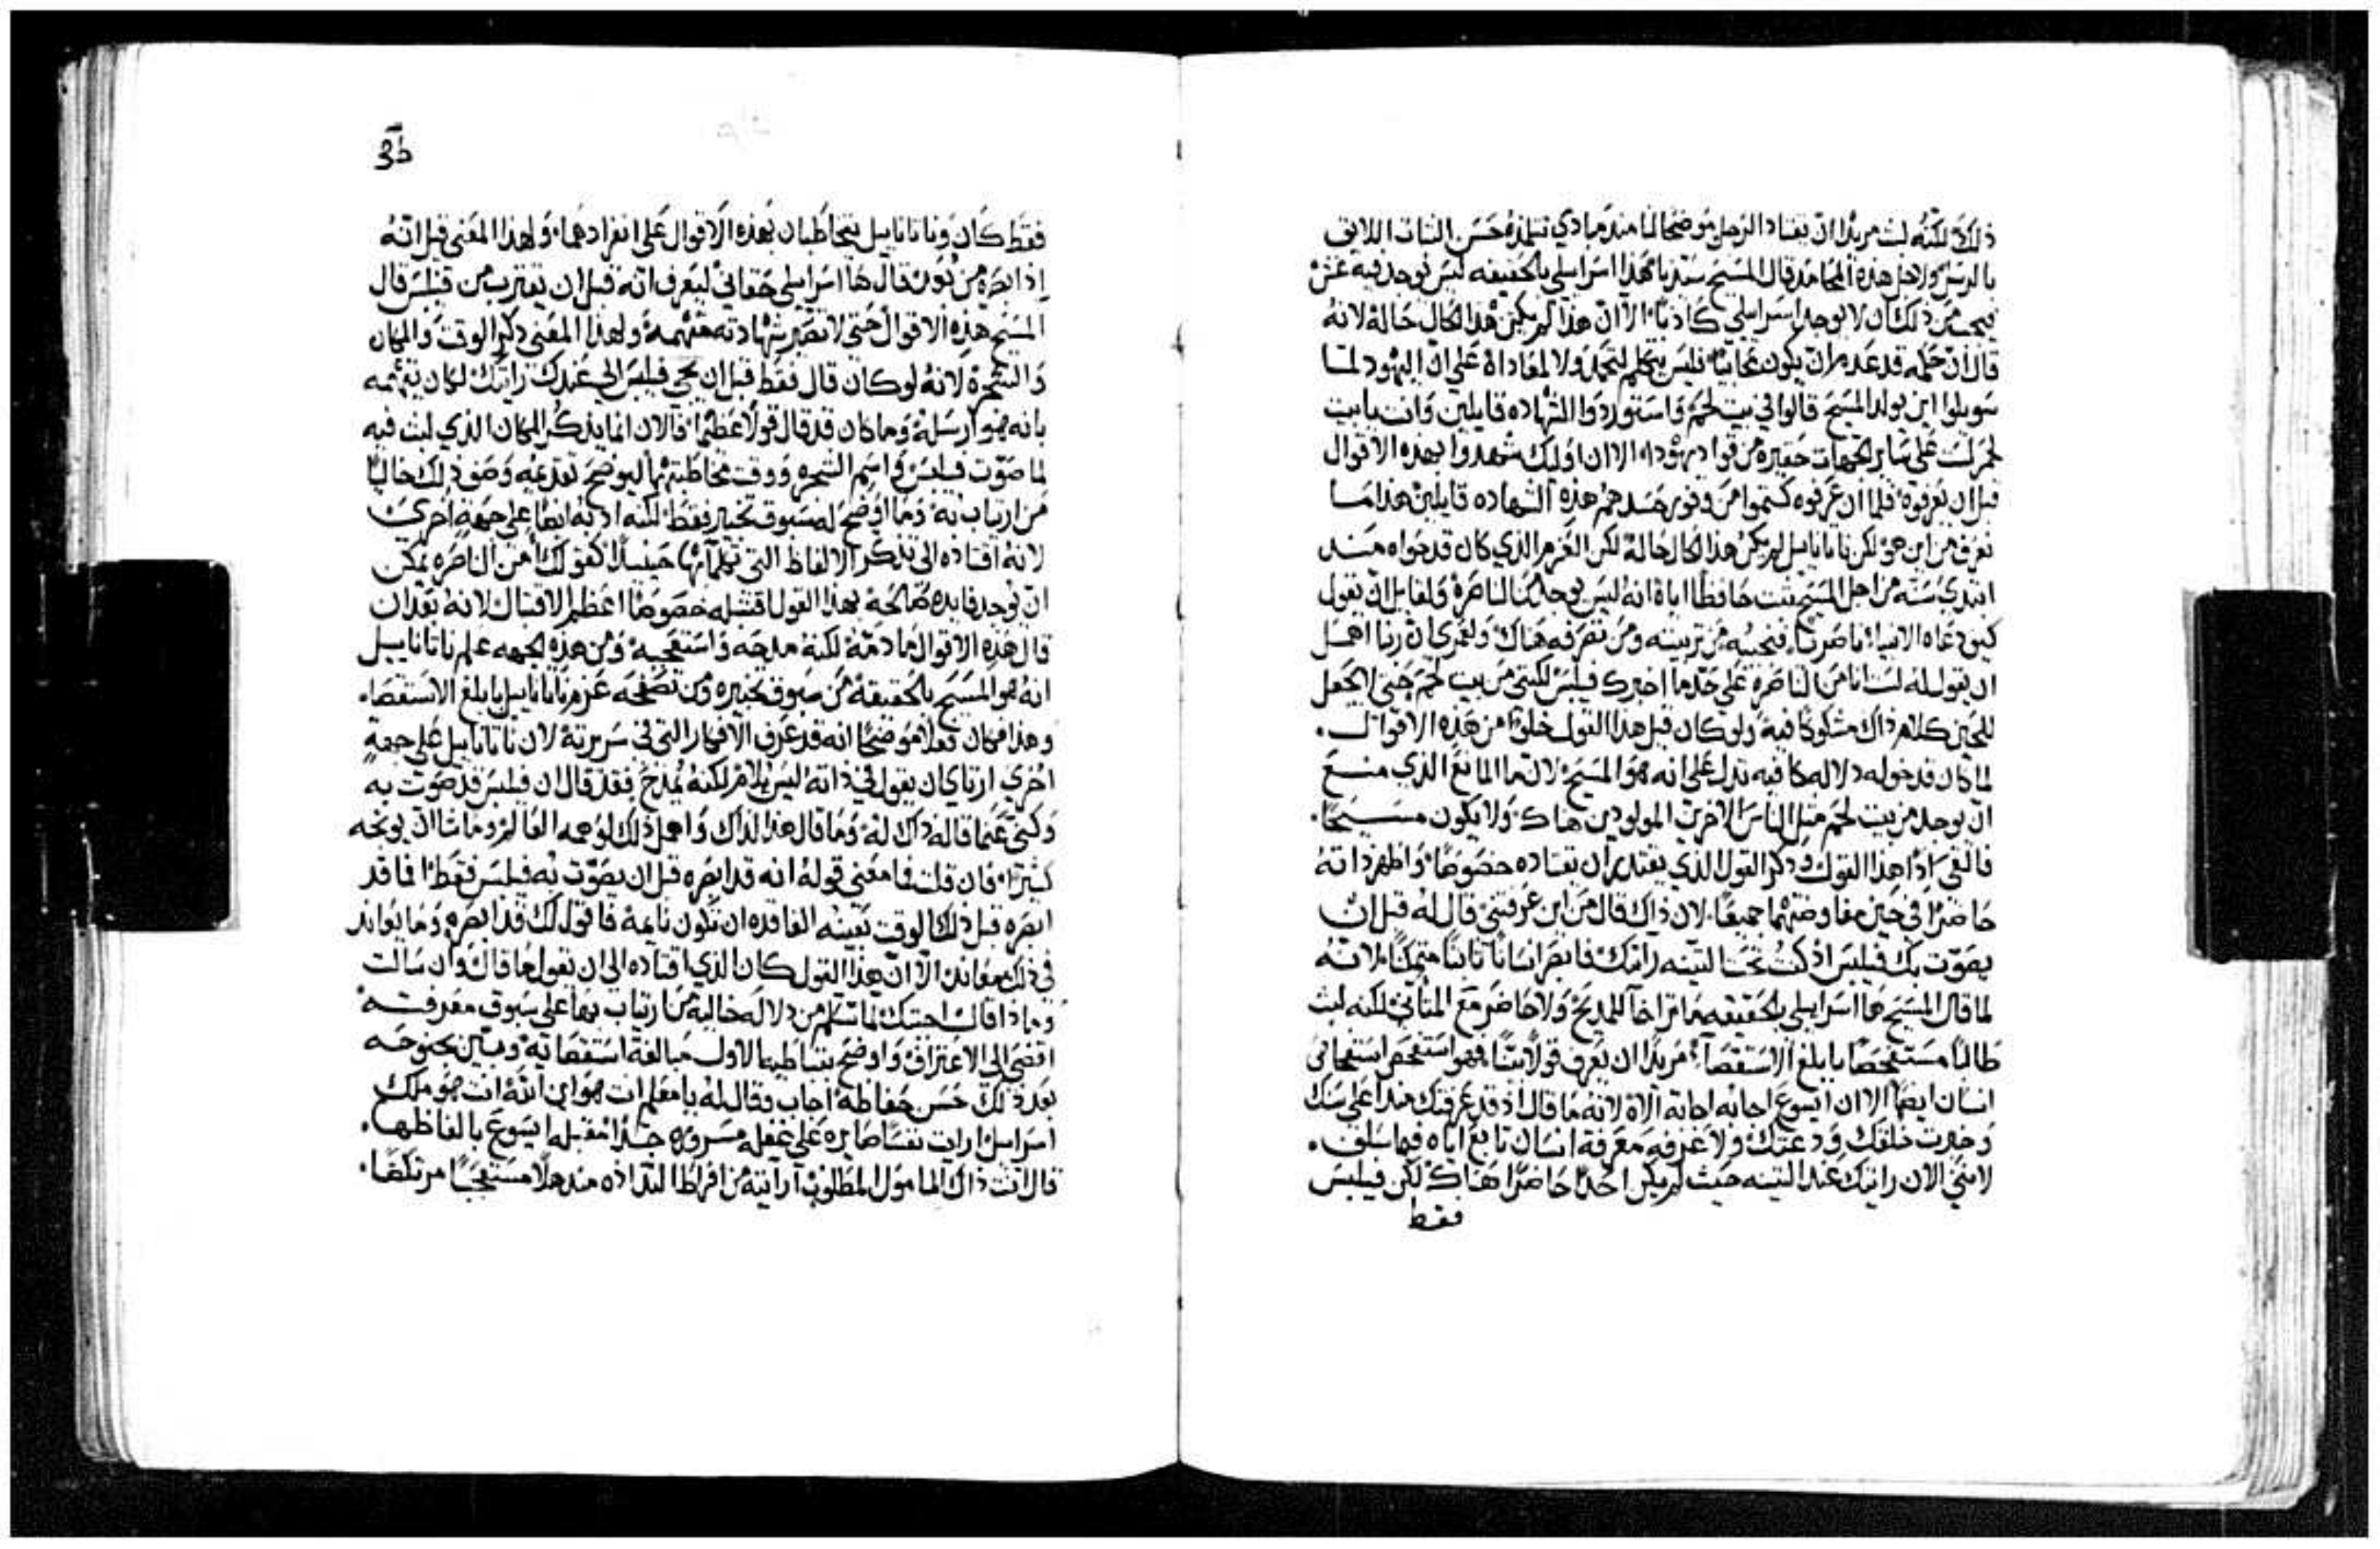 ذلك لكنه لبث مريدًا ان يقتاد الرجل موضحًا لنا منذ مبادي تتلمذه حسن الثبات اللايق
بالرسل ولاجل هذه المحامد قال المسيح ستدنا هذا اسراييلي بالحقيقه ليس توجد فيه غش
من ذلك ان لا يوجد اسراييلي كاذبًا الا ان هذا لم يكن هذا الحال حاله لانه
قال ان حكمه قد عدم ان يكون محابيًا فليس يتكلم لتجمل ولا لمعاداة على ان اليهود لما
سويلوا اين يولد المسيح قالوا في بيت لحم واستوردوا الشهاده قايلين وانت يا بيت
لحم لست على ساير الجهات حقيره من قواد يهودا الا ان اوليك شهدوا بهذه الاقوال
قبل ان يعرفوه فلما ان عرفوه كتموا من وفور حسدهم هذه الشهاده قايلين هذا ما
نعرف من اين هو لكن ناتاناييل لم يكن هذا الحال حاله لكن العزم الذي كان قد حواه منذ
ابتدي سنه من اجل المسيح ثبت حافظًا اياه انه ليس يوجد من الناصره ولقايل ان يقول
كيف دعاه الانبيا ناصريًا فنجيبه من تربيته ومن تصرفه هناك ولعمري ان ربنا اهمل
ان يقول له لست انا من الناصره على حد ما اخبرك فيلبس لكنني من بيت لحم حتى لا يجعل
للحين كلام ذاك مشكوكًا فيه ولو كان قبل هذا القول خلوًا من هذه الاقوال
لما كان قد خوله دلاله كافيه تدل على انه هو المسيح لان ما المانع الذي منع
ان يوجد من بيت لحم مثل الناس الاخرين المولودين هناك ولا يكون مسيحًا
فالقى اذًا هذا القول وذكر القول الذي يقتدر ان يقتاده خصوصًا واظهر ذاته
حاضرًا في حين مفاوضتهما جميعًا لان ذاك قال من اين عرفتني قال له قبل ان
يصوت بك فيلبس اذ كنت تحت التينه رايتك فابصر انسانًا ثابتًا متمكنًا لانه
لما قال المسيح ها اسراييلي بالحقيقه ما تراخا للمديح ولا حاضر مع المتاني لكنه لبث
طالبًا مستفحصًا بابلغ الاستقصا مريدًا ان يعرف قولًا بينًا فهو استفحص استفحاص
انسان ايضًا الا ان ايسوع اجابه اجابة الاه لانه ما قال اذ قد عرفتك منذ اعلى سنك
وخبرت خلقك ودعتك ولا عرفه معرفة انسان تابع اياه فيما سلف
لانني الان رايتك عند التينه حيث لم يكن احدًا حاضرًا هناك لكن فيلبس
فقط
فقط كان وناتاناييل يتخاطبان بهذه الاقوال على انفرادهما ولهذا المعنى قيل انه
اذ ابصره من بون قال ها اسراييلي حقاني ليعرف انه قبل ان يقترب من فيلبس قال
المسيح هذه الاقوال حتى لا تصير شهادته متهمه ولهذا المعنى ذكر الوقت والمكان
والشجره لانه لو كان قال فقط قبل ان يجي فيلبس الي عندك رايتك لكان يتهمه
بانه هو ارسله وما كان قد قال قولًا عظيمًا فالان انما يذكر المكان الذي لبث فيه
لما صوت فيلبس واسم الشجره ووقت مخاطبتهما ليوضح تقدمه وصفه ذلك خاليًا
من ارتياب به وما اوضح له سبوق تخبير فقط لكنه ادبه ايضًا على جهة اخرى
لانه اقتاده الى تذكر الالفاظ التي تكلما بها حينيذ كقولك امن الناصره يمكن
ان توجد فايده صالحه بهذا القول اقتبله خصوصًا اعظم الاقتبال لانه بعد ان
قال هذه الاقوال ما ذمه لكنه مدحه واستعجبه ومن هذه الجهه علم ناتاناييل
انه هو المسيح بالحقيقه من سبوق تخبيره ومن تصفحه عزم ناتاناييل بابلغ الاستقصا
وهذا فكان فعلًا موضحًا انه قد عرف الافكار التي في سريرته لان ناتاناييل على جهة
اخرى ارتاى ان يقول في ذاته ليس يلام لكنه يمدح فقد قال ان فيلبس قد صوت به
وكنى عما قاله ذاك له وما قال هذا لذاك واهمل ذلك لوهمه العالم وما شا ان يوبخه
كثيرًا فان قلت فما معنى قوله انه قد ابصره قبل ان يصوت به فيلبس فقط افما قد
ابصره قبل ذلك الوقت بعينه الفاقده ان تكون نايمه فاقول لك قد ابصره وما يعاند
في ذلك معاند الا ان هذا القول كان الذي اقتاده الى ان يقول ما قال وان سالت
وماذا قال اجبتك لما تسلم من دلاله خاليه من ارتياب بها على سبوق معرفته
افضى الى الاعتراف واوضح بتباطيه الاول مبالغة استقصايه وتبين بجنوحه
بعد ذلك حسن حفاظه اجاب وقال له يا معلم انت هو ابن الله انت هو ملك
اسراييل ارايت نفسًا صايره على غفله مسروره جدًا مقبله ايسوع بالفاظها
قال انت ذاك المامول المطلوب ارايته من افراط التذاذه منذهلًا مستعجبًا مرتكضًا